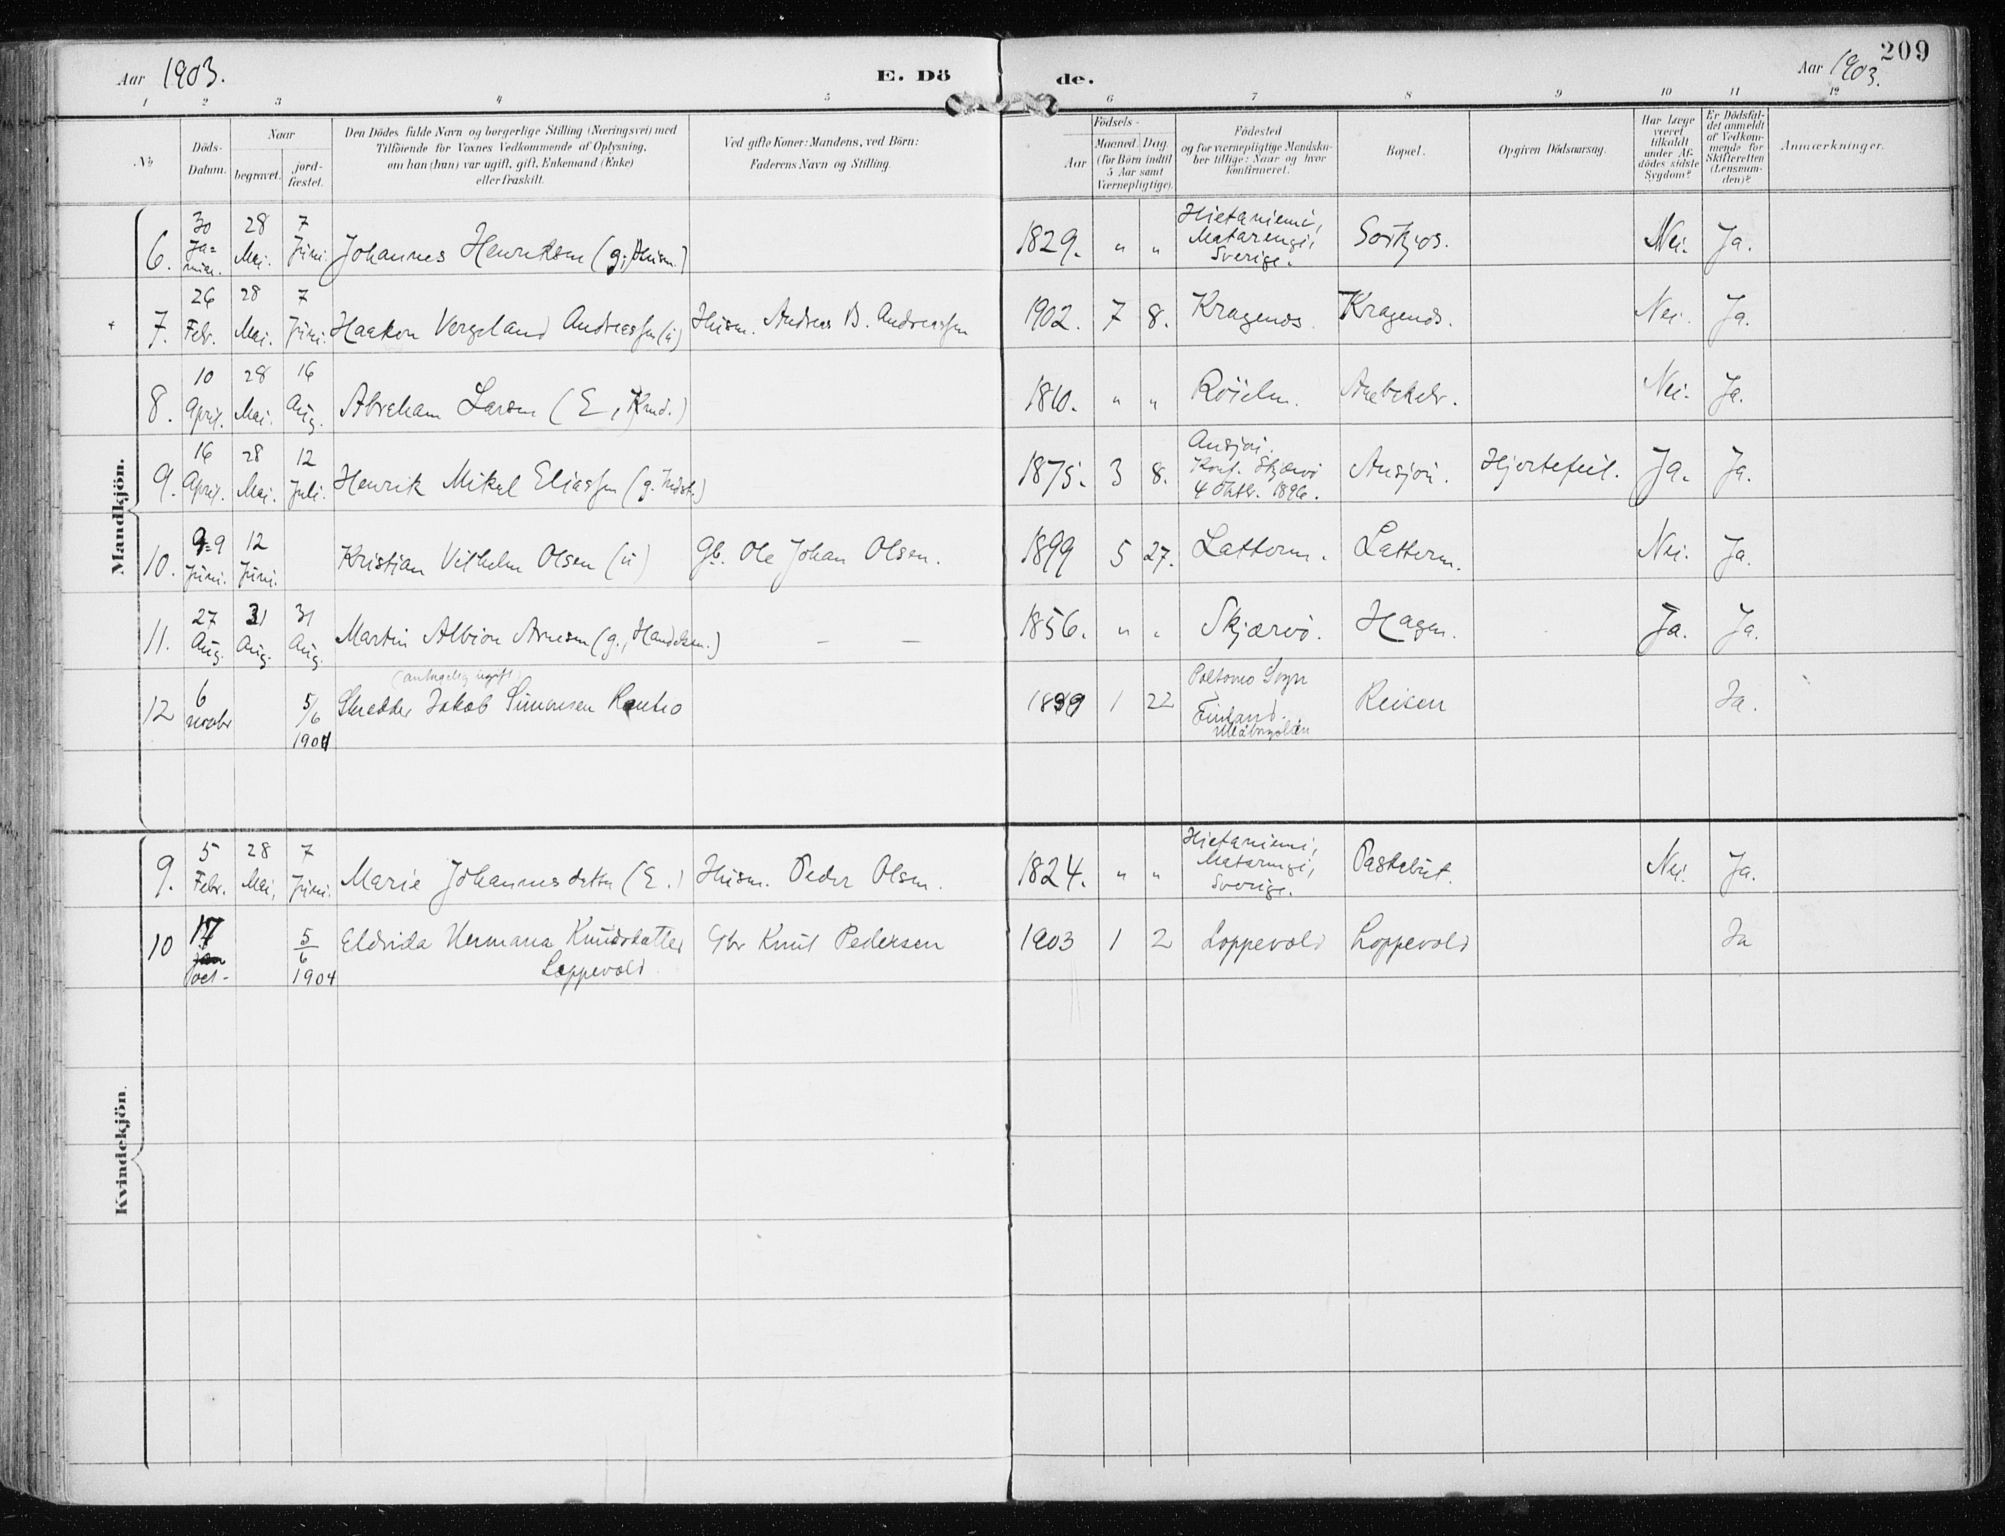 Aar 1903. E. Dö de. Aar 1903. 209
1 2 3 4 5 6 7 8 9 10 11 12
No
Döds-
Datum.
Naar
begravet.
jord-
fæstet.
Den Dödes fulde Navn og borgerlige Stilling (Næringsvei) med
Tilföiende for Voxnes Vedkommende af Oplysning,
om han (hun) var ugift, gift, Enkemand (Enke)
eller fraskilt.
Ved gifte Koner: Mandens, ved Börn:
Faderens Navn og Stilling.
Födsels-
Aar
Maaned. Dag.
(for Börn indtil
5 Aar samt
Værnepligtige).
Födested
og for værnepligtige Mandska-
ber tillige: Naar og hvor
konfirmeret.
Bopæl.
Opgiven Dödsaarsag.
Har Læge
været
tilkaldt
under Af-
dödes sidste
Sygdom?
Er Dödsfal-
det anmeldt
af Vedkom-
mende for
Skifteretten
(Lensman-
den)?
Anmærkninger.
Mandkjön.
6. 30 Januar. 28 Mai. 7 Juni. Johannes Henriksen (g., Husm.) 1829. " " Hietaniemi,
Matarengi,
Sverige. Nei. Ja.
7. 26 Febr. 28 Mai. 7 Juni. Haakon Vergeland Andreassen (u) Husm. Andreas B. Andreassen 1902. 7 8. Kragenæs. Kragenæs. Nei. Ja.
8. 10 April. 28 Mai. 16 Aug. Abraham Larsen (E., Kmd.) 1810. " " Röielen. Nei. Ja.
9. 16 April. 28 Mai. 12 Juli. Henrik Mikal Eliassen (g. Indst.) 1875. 3 8. Ansjöi.
Konf. Skjærvö
4 Oktbr. 1896. Ansjöi. Hjertefeil. Ja. Ja.
10. 9 Juni. 12 Juni. Kristian Vilhelm Olsen (u) Gb. Ole Johan Olsen. 1899 5 27. Lattern. Lattern. Nei. Ja.
11. 27 Aug. 31 Aug. 31 Aug. Martin Albion Arnesen (g., Handelsm.) – – 1856. " " Skjærvö. Hagen. Ja. Ja.
(antagelig ugift)
12 6 novbr 5/6
1904 Skrædder Jakob Simonsen Rautio 1 22 Paltamo Sogn
Finland. Reisen Ja.
Kvindekjön.
9. 5 Febr. 28 Mai, 7 Juni. Marie Johannesdatter (E.) Husm. Peder Olsen. 1824. " " Hietaniemi,
Matarengi,
Sverige. Nei. Ja.
10 17
oct- 5/6
1904 Eldrida Hermana Knudsdatter
Loppevold. Gbr Knut Pedersen 1903 1 2 Loppevold Loppevold Ja